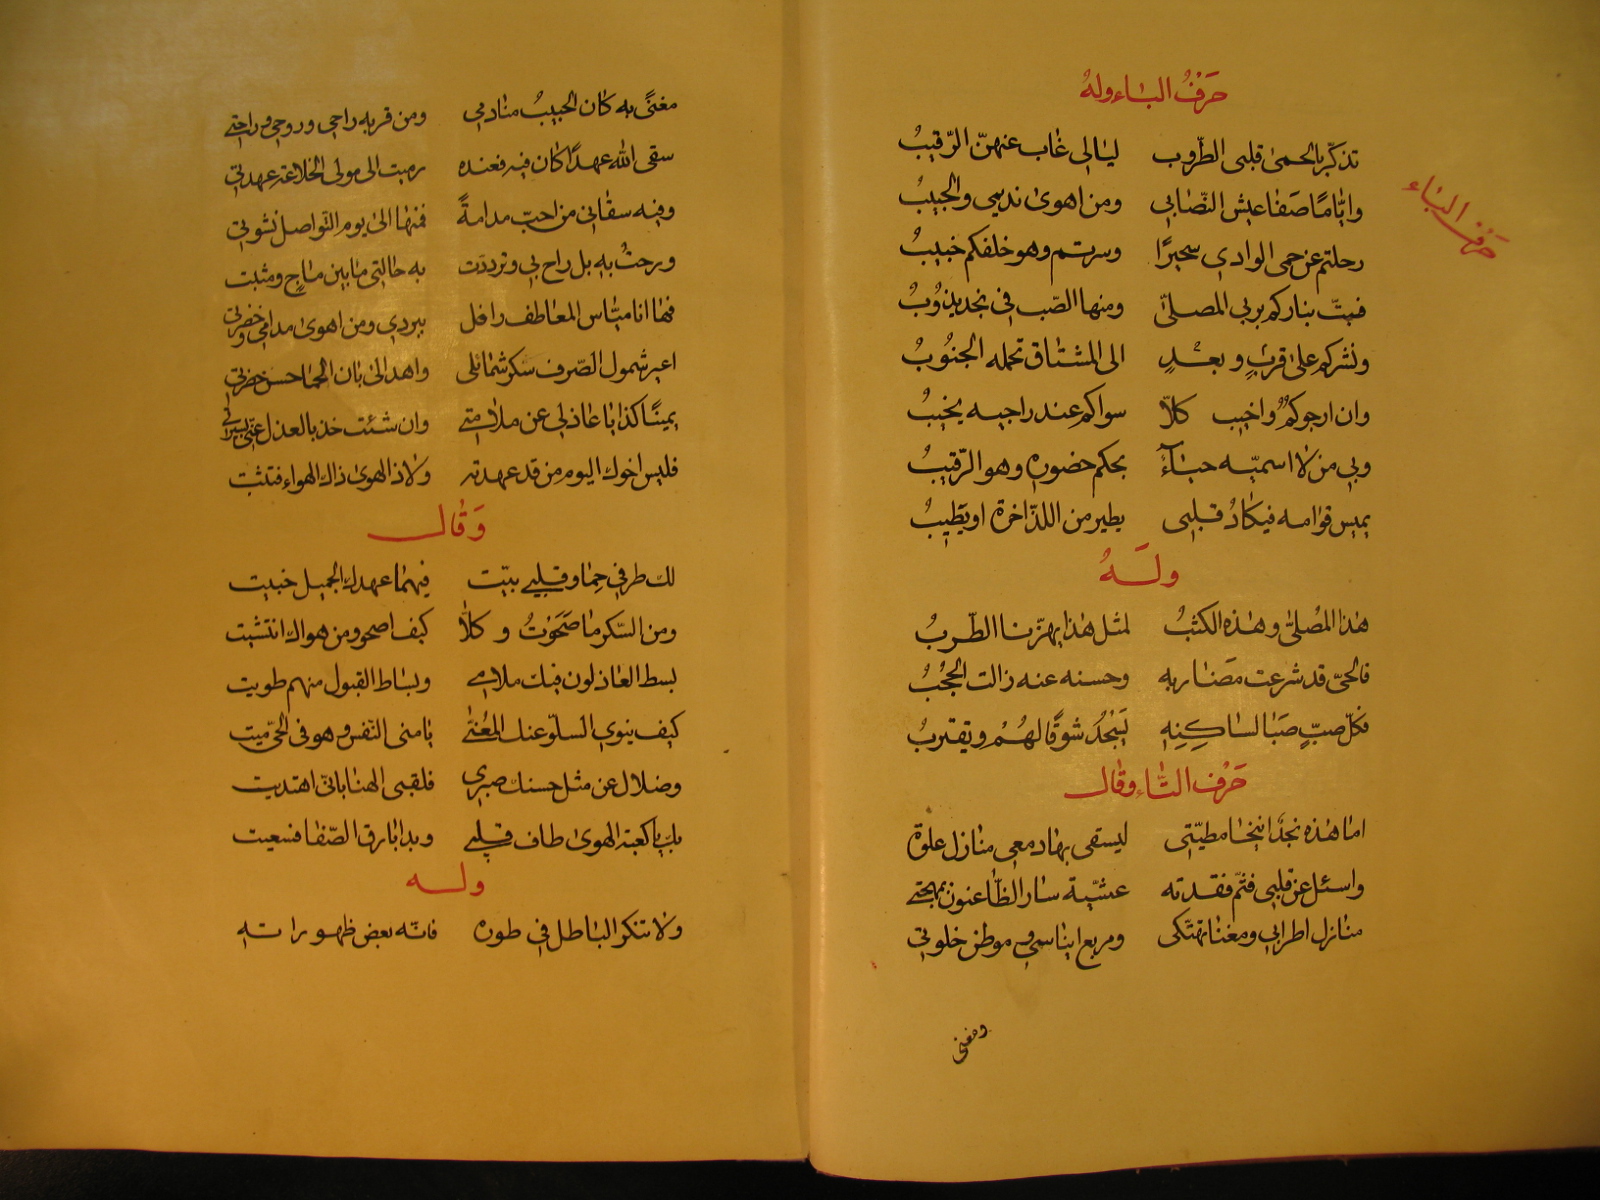 حَرْفُ الباء وله
حَرْف الباء
تذكّر بالحمى قلبى الطّروب ليالى غاب عنهنّ الرّقيبُ
وايّامًا صَفا عيش التّصابى ومن اهوى نديمى والحبيبُ
رحلتم عن حمى الوادي سحيرًا وسرتم وهو خلفكم خبيبُ
فبتّ بناركم بربى المصلّى ومنها الصّب في نجد يذوُبُ
ونشركم على قربٍ وبعدٍ الى المشتاق تحمله الجنُوبُ
وان ارجوكمُ واخيب كلّا سواكم عند راجيه يخيبُ
وبي من لا اسميّه حياءً بحكم حضوره وهو الرّقيبُ
يميس قوامه فيكادُ قلبى يطير من اللذاذة او يَطيبُ
ولَهُ
هذا المُصلّى وهذه الكثبُ لمثل هذا يهزّنا الطّربُ
فالحىّ قد شرعت مَضاربه وحسنه عنه زالت الحجُبُ
فكلّ صبٍّ صَبا لساكنِه يَسْجُدُ شوقًا لهُم ويقتربُ
حَرْف التّاء وقال
اما هذه نجدٌ انخا مطيّتى ليسقى بها دمعي منازل علوة
واسئل عن قلبى فثمّ فقدته عشيّة سار الظّاعنون بمهجتى
منازل اطرابي ومغنا تهتّكى ومربع ايناسي وموطن خلوتي
ومغنى
مغنىً به كان الحبيبُ منادمي ومن قربه راحي وروحي وراحتى
سقى اللّه عهدًا كان فيه فعنده رميت الى مولى الخلاعة عهدتي
وفيه سقاني من احبّ مدامةً فمنها الى يوم التّواصل نشوتي
ورحتُ به بل راح بي وتردّدت به حالتي مابين ماحٍ ومثبت
فها انا ميّاس المعاطف رافل ببردي ومن اهوى مدامي وخضرتي
اعير شمول الصّرف سكر شمائلي واهدى الى بان الحما حسن خضرتي
يمينًا كذا يا عاذلي عن ملامتى وان شئت خذ بالعذل عنّي
فليس اخوك اليوم من قد عهدته ولا ذا الهوى ذاك الهواء فتثبت
وَقال
لك طرفي حِما وقلبي بيت فيهما عهدك الجميل خبيت
ومن السّكر ما صَحَوْتُ وكلّا كيف اصحو ومن هواك انتشيت
بسط العاذلون فيك ملامي وبساط القبول منهم طويت
كيف ينوي السلوّ عنك المُعَنّى يا منى النّفس وهو فى الحىّ ميت
وضلال عن مثل حسنك صبري فلقبى الهنا بانّى اهتديت
بك يا كعبة الهوى طاف قلبي وبدا بارق الصّفا فسعيت
وله
ولا تنكر الباطل في طوره فانّه بعض ظهوراته